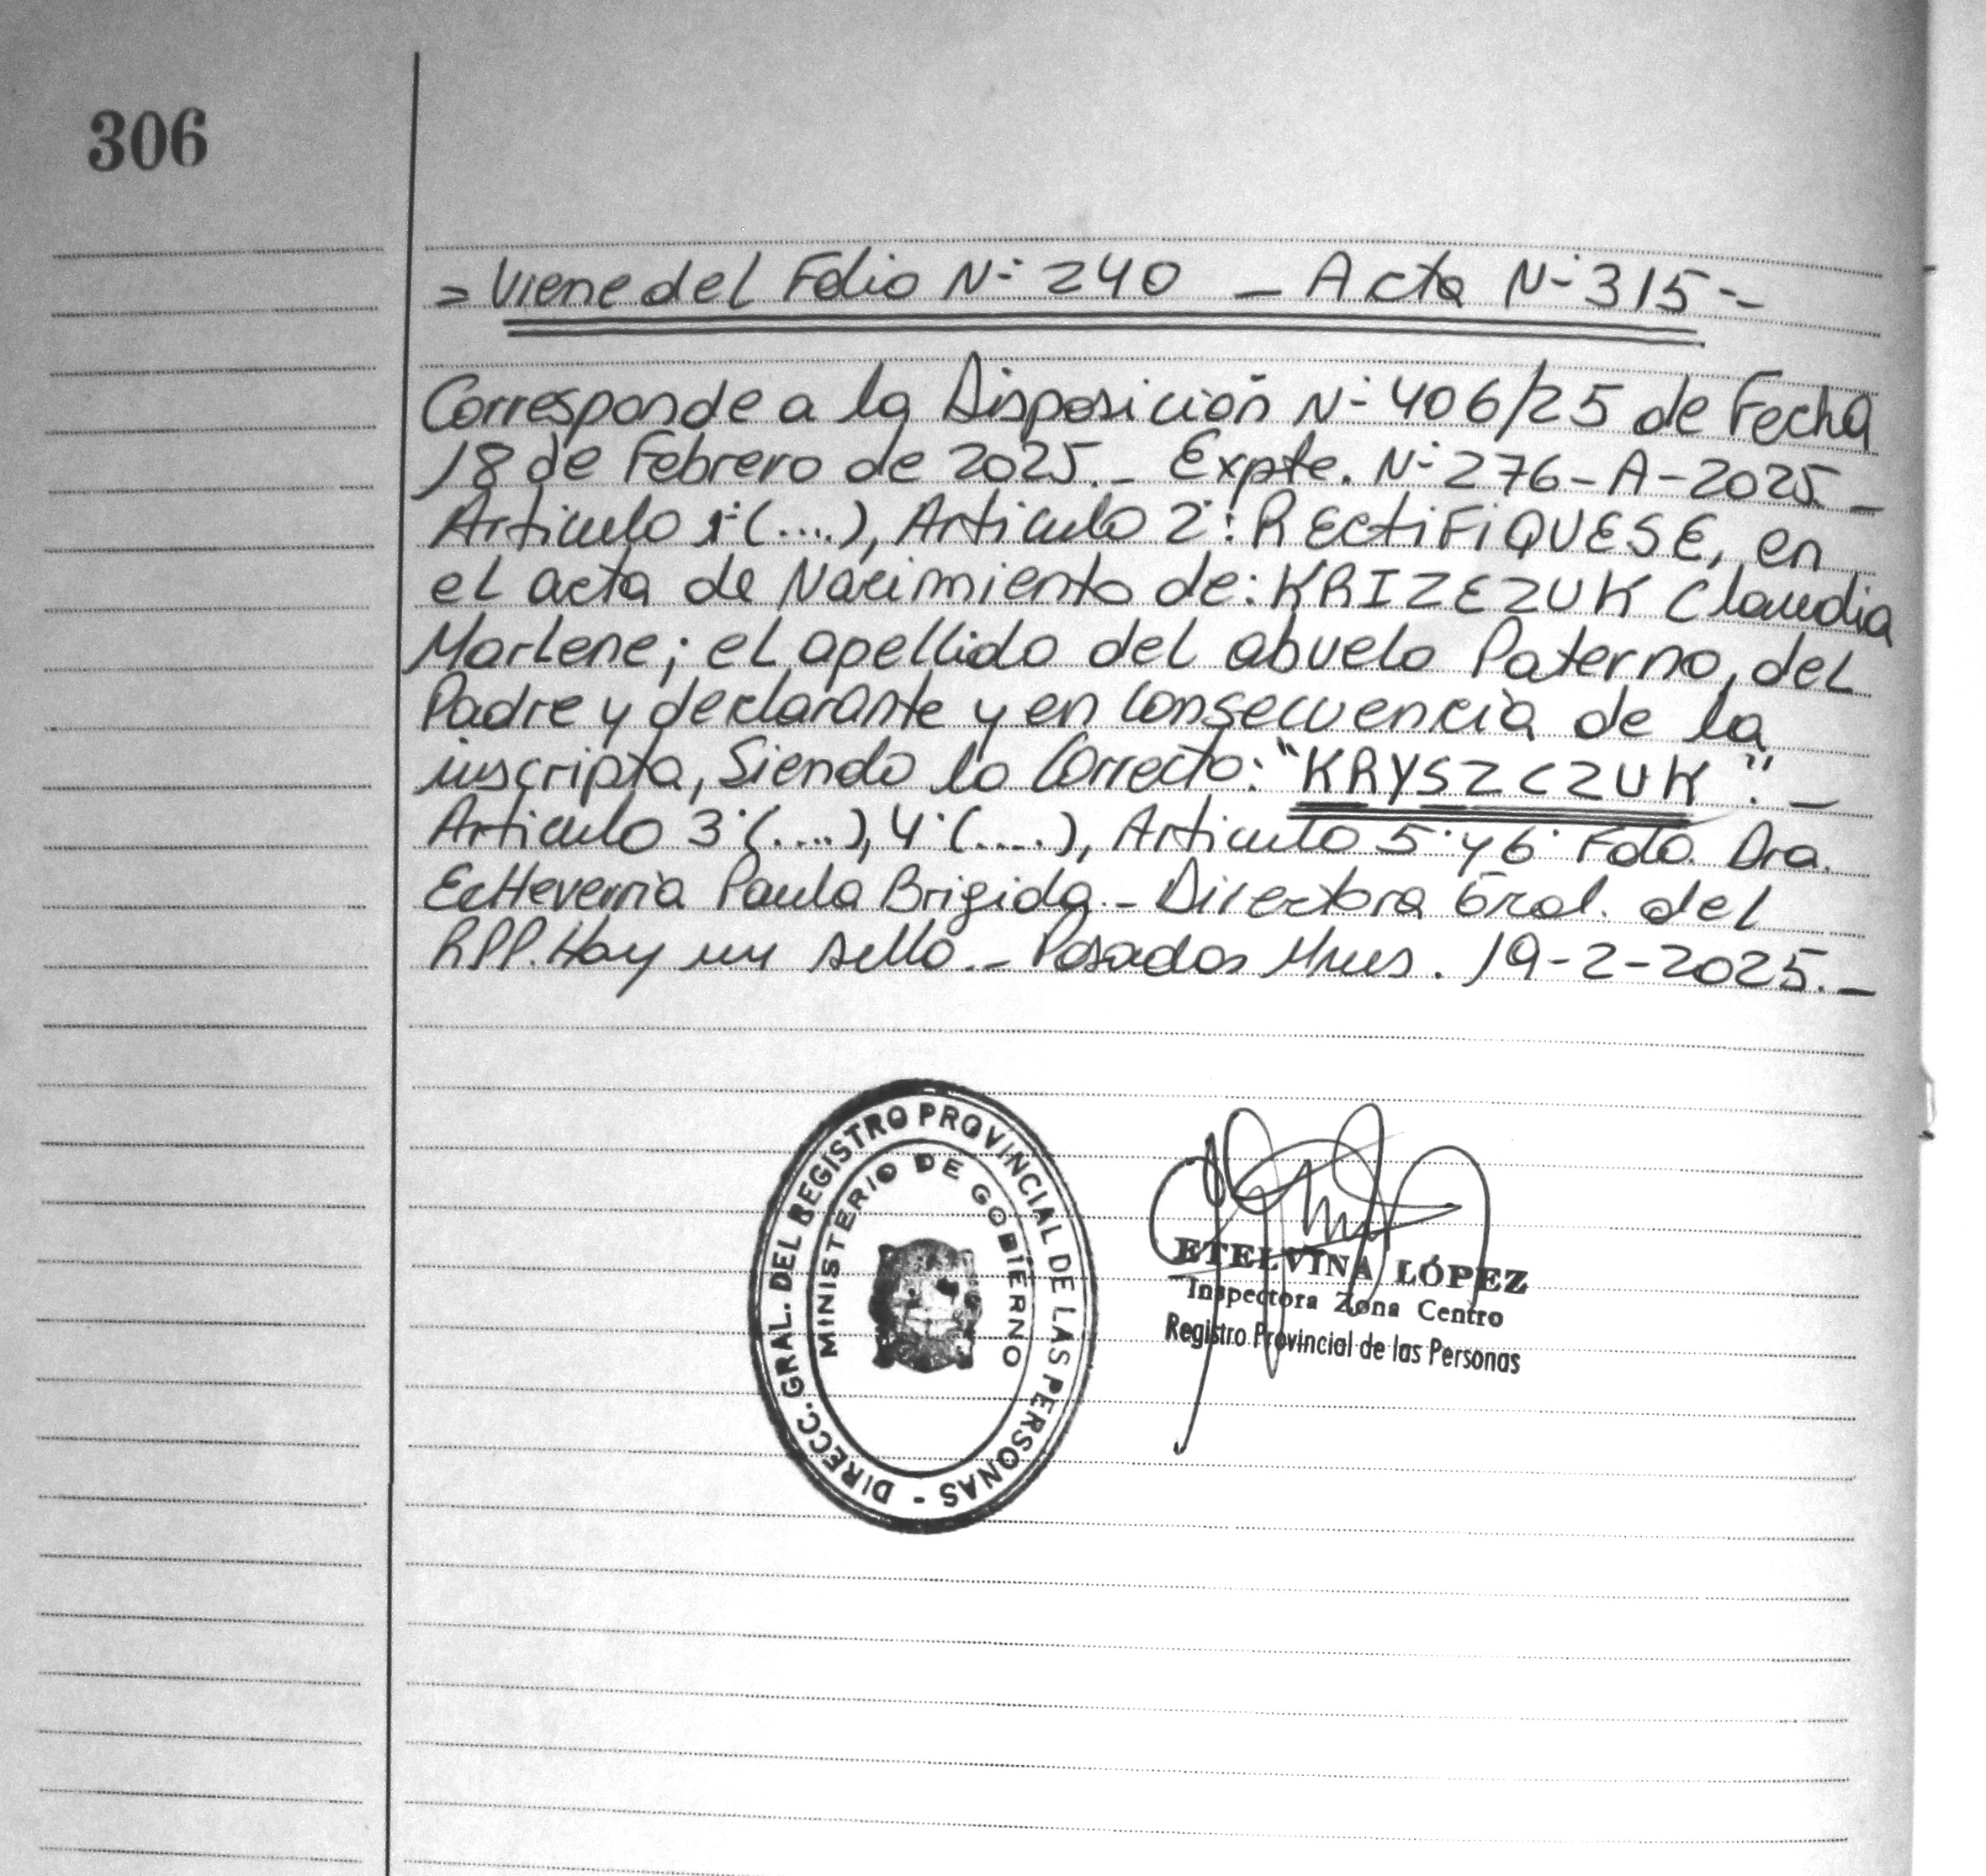 306
= Viene del Folio N° 240 _ Acta N° 315 --
Corresponde a la Disposición N° 406/25 de Fecha
18 de Febrero de 2025._ Expte. N° 276-A-2025_
Articulo 1° (....), Articulo 2°: RECtiFiQUESE, en
el acta de Nacimiento de: KRIZEZUK Claudia
Marlene; el apellido del abuelo Paterno, del
Padre y declarante y en consecuencia de la
inscripta, Siendo lo Correcto: "KRYSZCZUK"._
Articulo 3° (....), 4° (....), Articulo 5° y 6° Fdo. Dra.
Echeverria Paula Brigida._ Directora Gral. del
RPP. Hay un sello._ Posadas Mnes. 19-2-2025._
DIRECC. GRAL. DEL REGISTRO PROVINCIAL DE LAS PERSONAS -
MINISTERIO DE GOBIERNO
ETELVINA LÓPEZ
Inspectora Zona Centro
Registro Provincial de las Personas